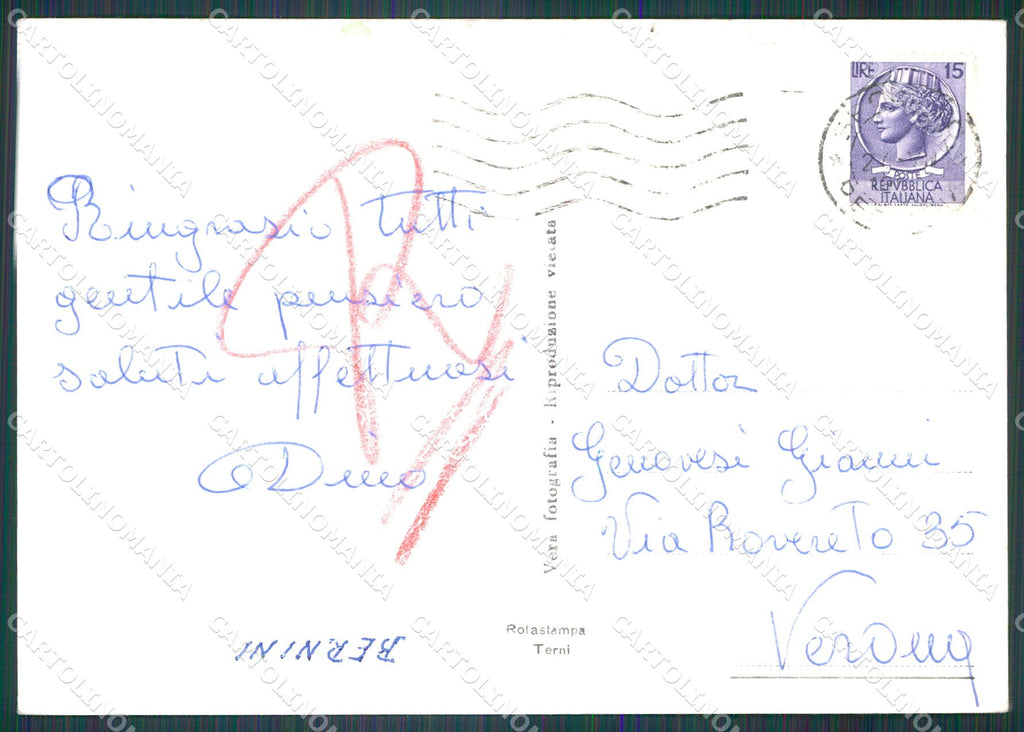 LIRE 15
POSTE
REPVBBLICA
ITALIANA
Ringrazio tutti
gentile pensiero
saluti affettuosi
Dino
Vera fotografia - Riproduzione vietata
Dottor
Genovesi Gianni
Via Rovereto 35
Verona
Rotastampa
Terni
BERNINI
CARTOLINOMANIA